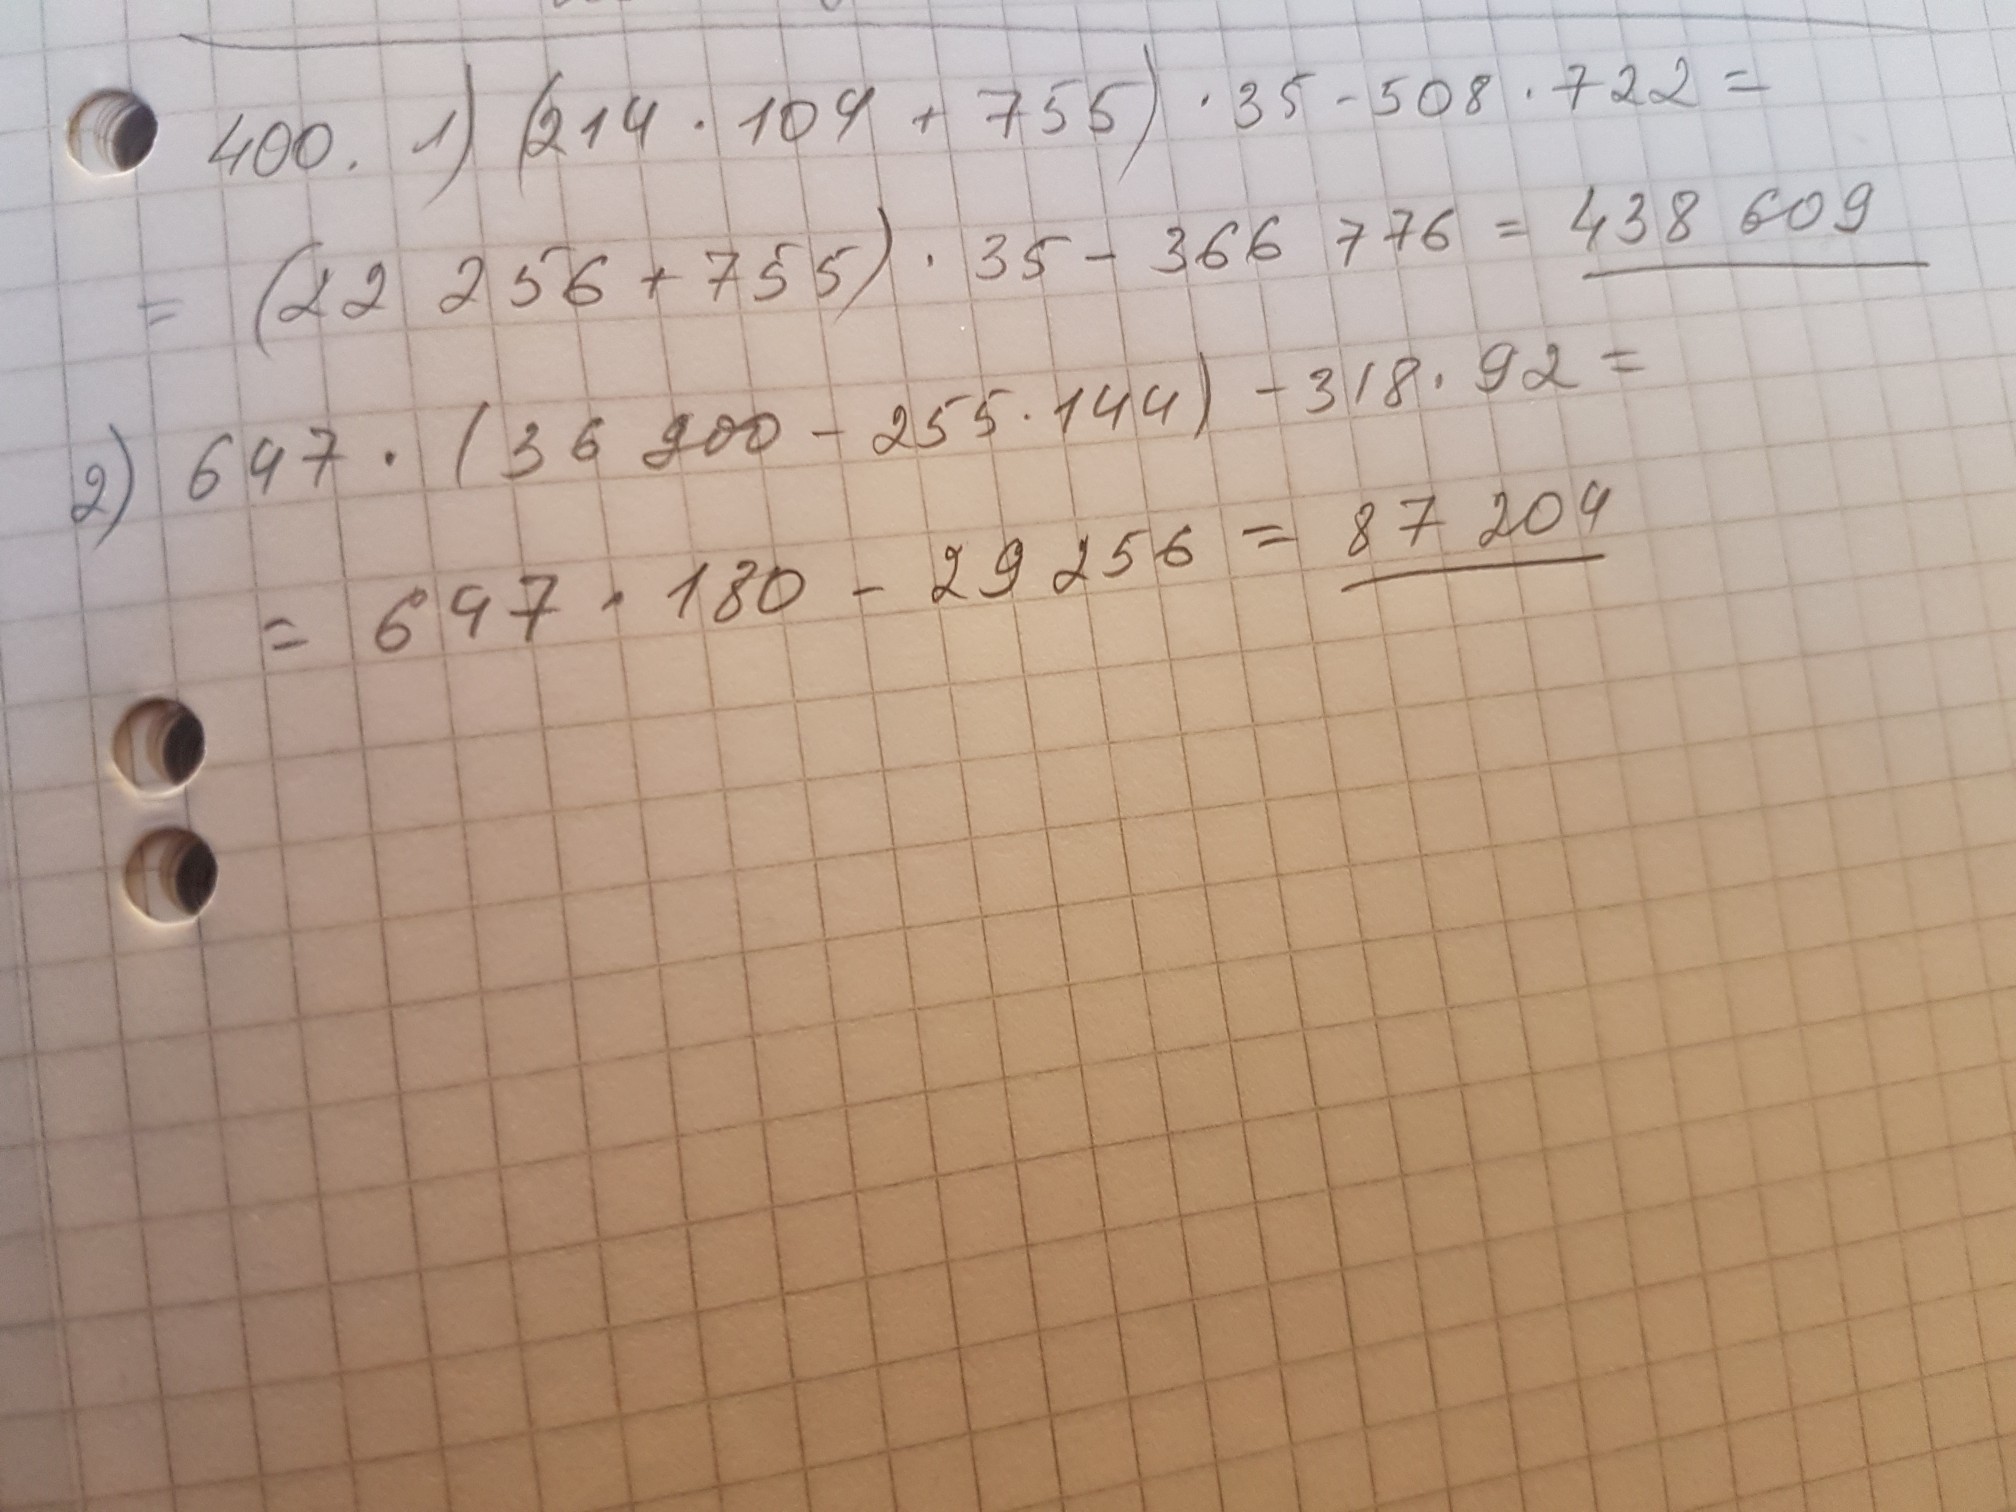 400. 1) (214 · 104 + 755) · 35 - 508 · 722 =
= (22 256 + 755) · 35 - 366 776 = 438 609
2) 647 · (36 900 - 255 · 144) - 318 · 92 =
= 647 · 180 - 29 256 = 87 204